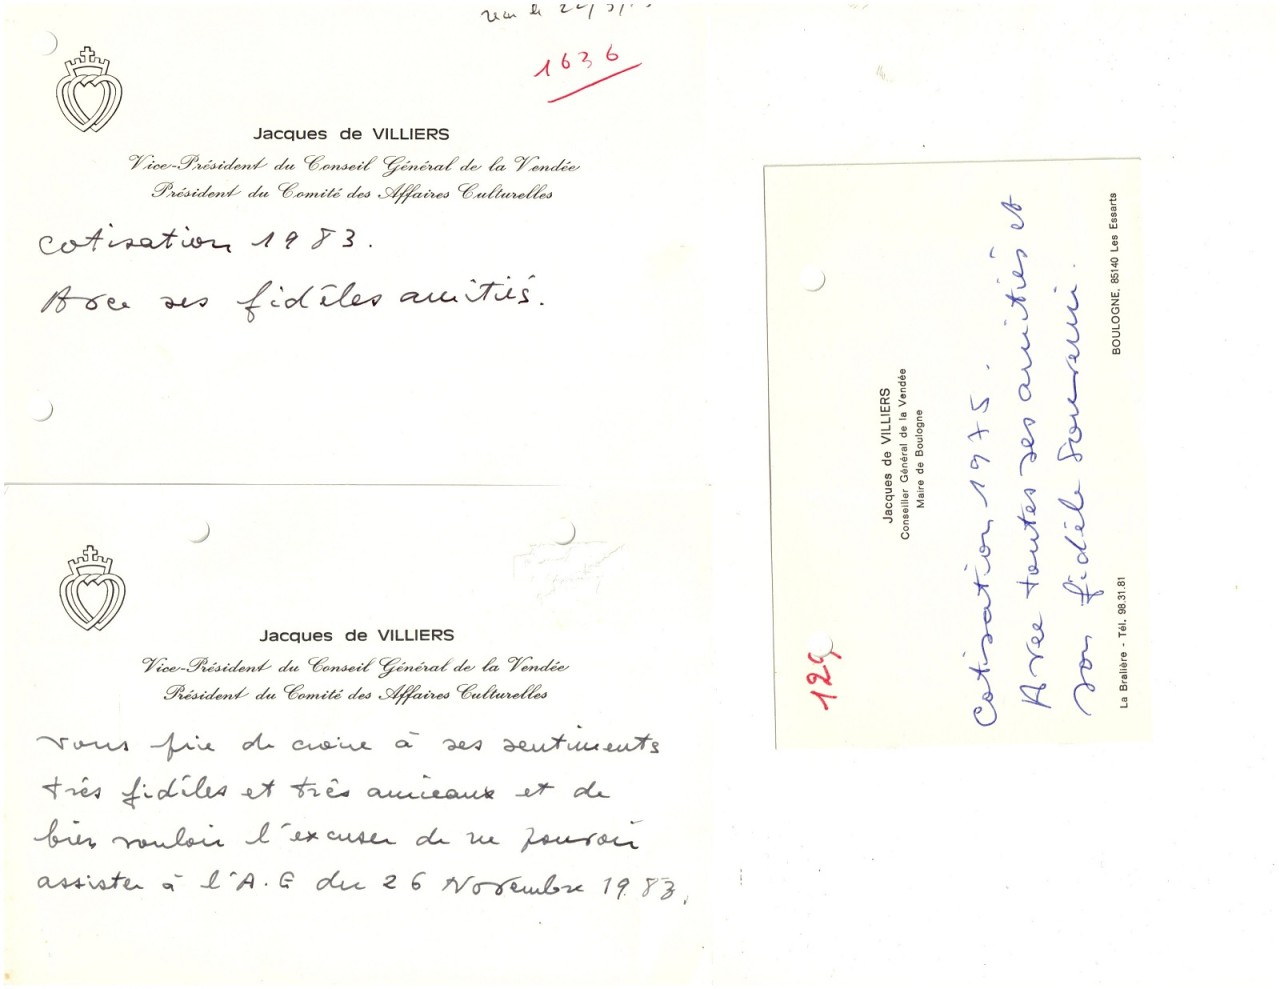 1636
Jacques de VILLIERS
Vice-Président du Conseil Général de la Vendée
Président du Comité des Affaires Culturelles
cotisation 1983.
Avec ses fidèles amitiés.
Jacques de VILLIERS
Vice-Président du Conseil Général de la Vendée
Président du Comité des Affaires Culturelles
vous prie de croire à ses sentiments
très fidèles et très amicaux et de
bien vouloir l'excuser de ne pouvoir
assister à l'A.G du 26 Novembre 1983.
129
Jacques de VILLIERS
Conseiller Général de la Vendée
Maire de Boulogne
Cotisation 1975.
Avec toutes ses amitiés et
son fidèle souvenir.
La Bralière - Tél. 98.31.81
BOULOGNE, 85140 Les Essarts